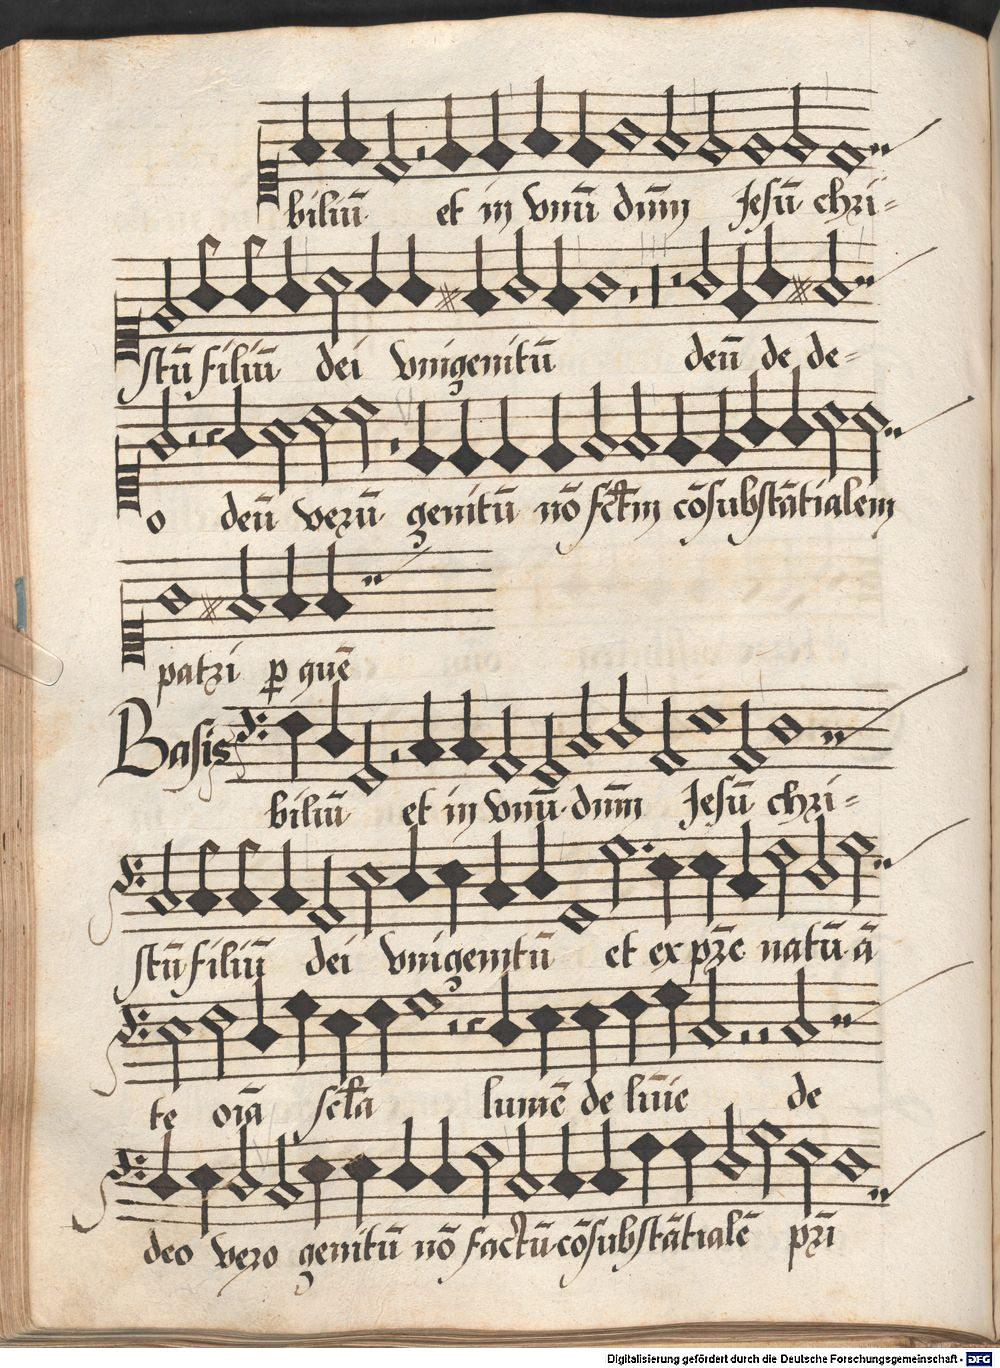 biliū et in vnū dnm̄ Jesū chri=
stū filiū dei vnigenitū deū de de=
o deū verū genitū nō fctm̄ cōsubstātialem
patri p quē
Basis
biliū et in vnū dnm̄ Jesū chri=
stū filiū dei vnigenitū et ex pr̄e natū ā
te oīa scl̄a lumē de līnie de
deo vero genitū nō factū cōsubstātialē pr̄i
Digitalisierung gefördert durch die Deutsche Forschungsgemeinschaft - DFG